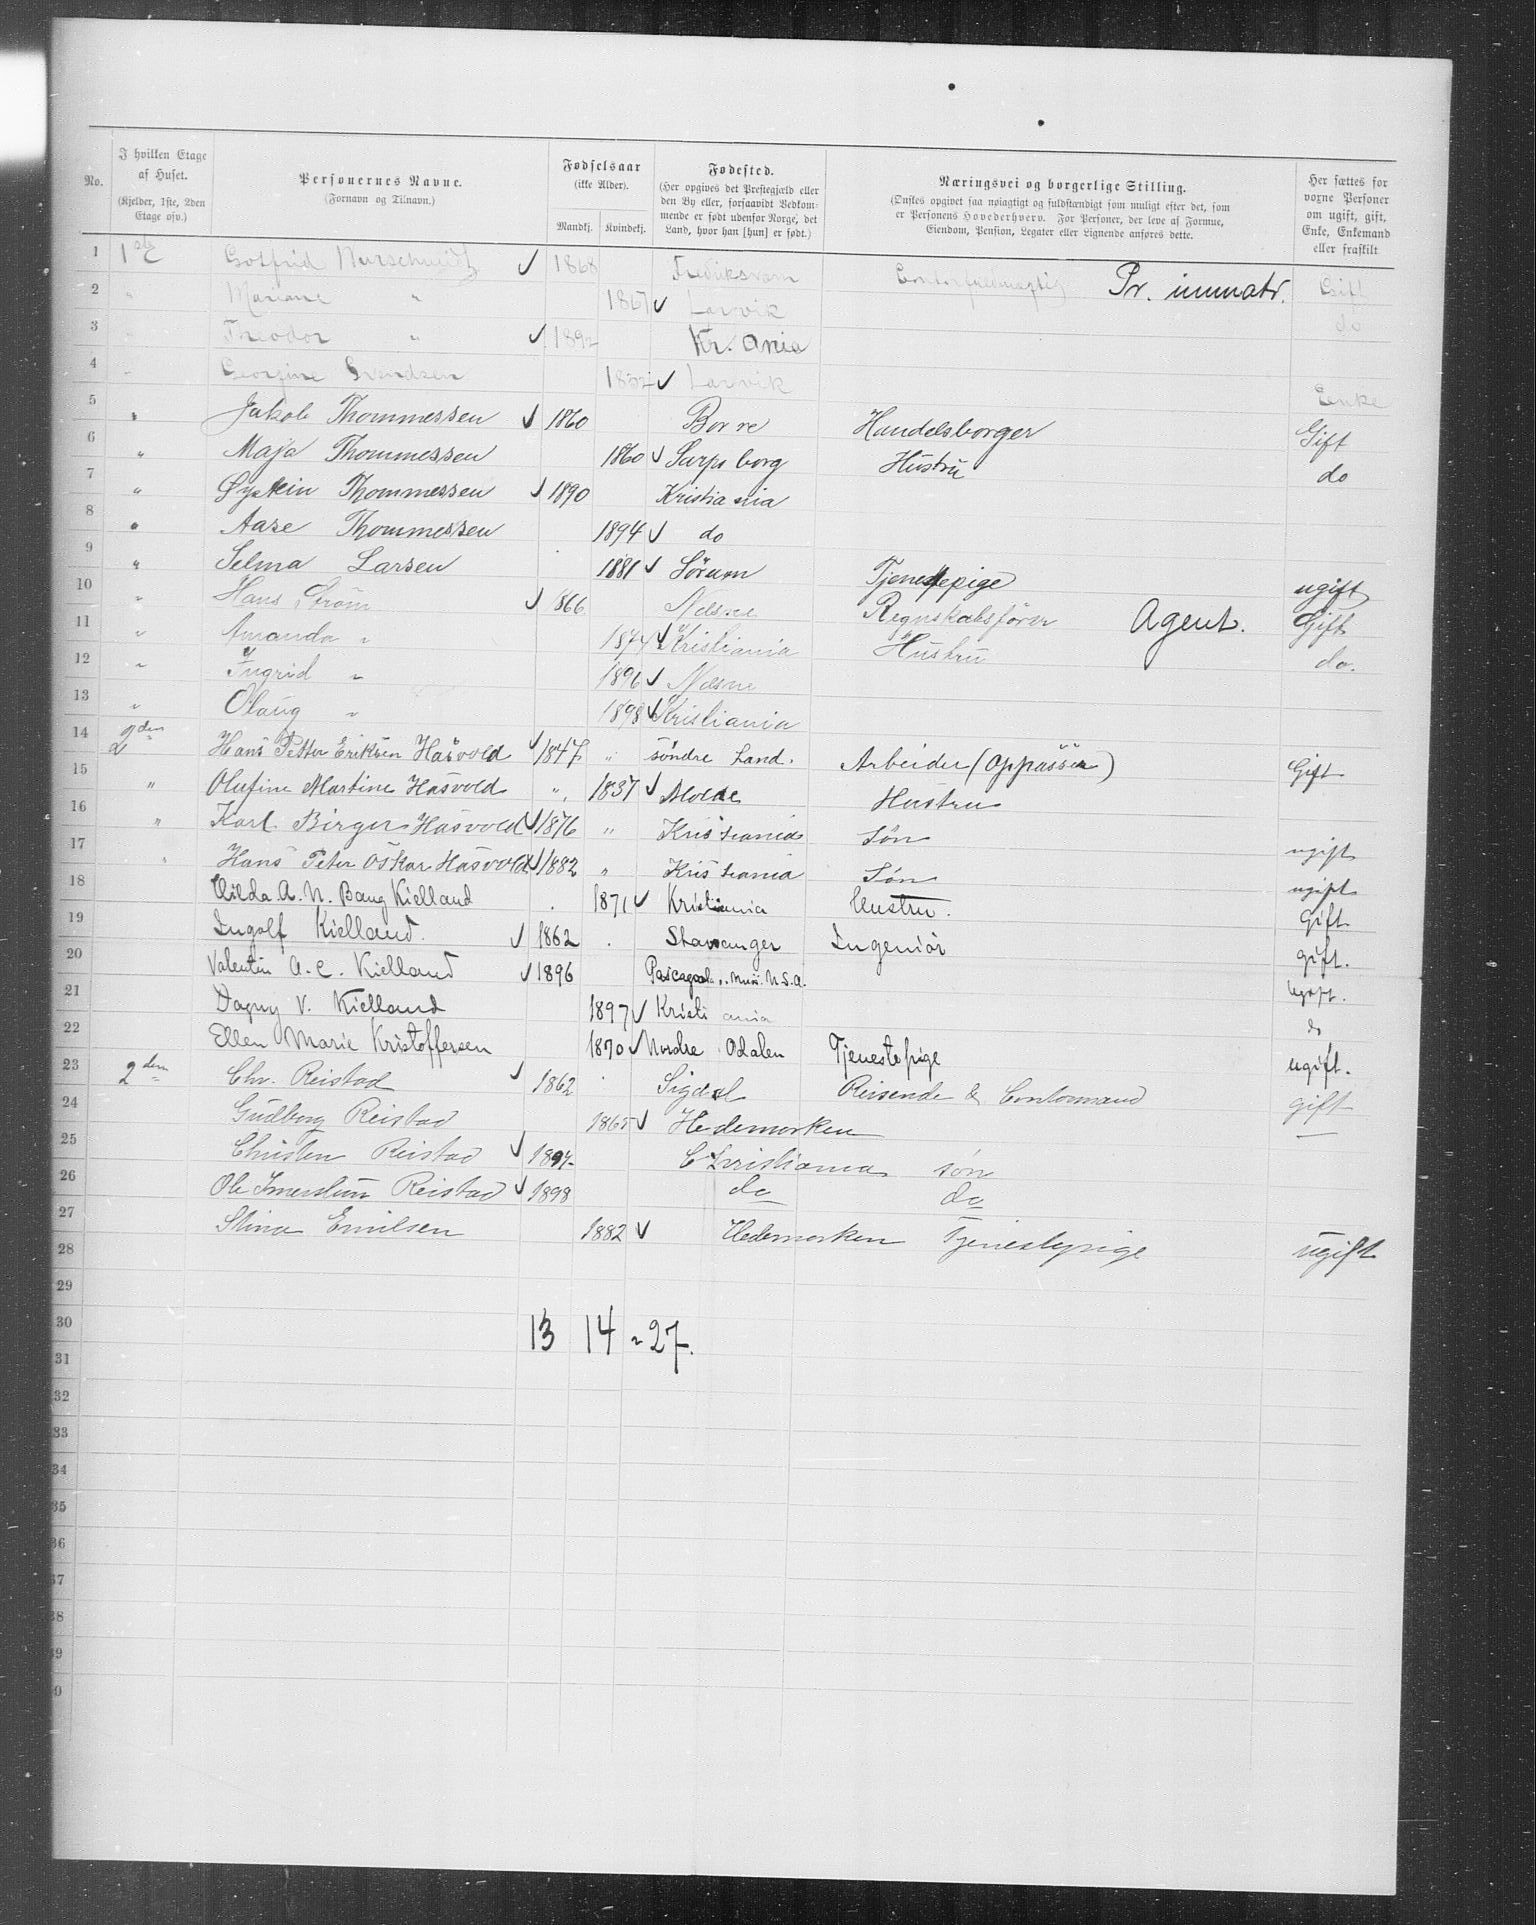 No. | I hvilken Etage af Huset. (Kjelder, 1ste, 2den Etage osv.) | Personernes Navne. (Fornavn og Tilnavn.) | Fødselsaar (ikke Alder). Mandkj. | Kvindekj. | Fødested. (Her opgives det Præstegjæld eller den By eller, forsaavidt Vedkommende er født udenfor Norge, det Land, hvor han [hun] er født.) | Næringsvei og borgerlige Stilling. (Ønskes opgivet saa nøiagtigt og fuldstændigt som muligt efter det, som er Personens Hovederhverv. For Personer, der leve af Formue, Eiendom, Pension, Legater eller Lignende anføres dette. | Her sættes for voxne Personer om ugift, gift, Enke, Enkemand eller fraskilt
1 1ste E Gotfrid ✓ 1868 Fredriksværn Pr. immatr. Gift
2 " Mariane " 1867 ✓ Larvik do
3 " Theodor " ✓ 1892 Kr.ania
4 " Georgine Svendsen ✓ Larvik Enke
5 " Jakob Thommessen ✓ 1860 Borre Handelsborger Gift
6 " Maja Thommessen 1860 ✓ Sarpsborg Hustru do
7 " Øystein Thommessen ✓ 1890 Kristiania
8 " Aase Thommessen 1894 ✓ do
9 " Selma Larsen 1881 ✓ Sørum Tjenestepige ugift
10 " Hans Strøm ✓ 1866 Nesne Regnskabsfører Agent. Gift
11 " Amanda " 1874 ✓ Kristiania Hustru do.
12 " Ingrid " 1896 ✓ Nesne
13 " Olaug " 1898 ✓ Kristiania
14 2den Hans Petter Eriksen Hasvold ✓ 1847 " søndre Land. Arbeider (Oppasser) Gift
15 " Olufine Martine Hasvold " 1837 ✓ Molde Hustru
16 " Karl Birger Hasvold ✓ 1876 " Kristiania Søn ugift
17 " Hans Peter Oskar Hasvold ✓ 1882 " Kristiania Søn ugift
18 Hilda A. N. Bang Kielland 1871 ✓ Kristiania Hustru. gift
19 Ingolf Kielland. ✓ 1862 Stavanger Ingeniør gift.
20 Valentin A. C. Kielland ✓ 1896 Pascagoula, Miss. U.S.A. ugift.
21 Dagny V. Kielland 1897 ✓ Kristiania do
22 Ellen Marie Kristoffersen 1870 ✓ Nordre Odalen Tjenestepige ugift.
23 2den Chr. Reistad ✓ 1862 Sigdal Reisende & Contormand gift
24 Gudborg Reistad 1865 ✓ Hedemarken —
25 Christen Reistad ✓ 1897 Christiania søn
26 Ole Reistad ✓ 1898 do do
27 Stina Emilsen 1882 ✓ Hedemarken Tjenestepige ugift
28
29
30 13 14 = 27.
31
32
33
34
35
36
37
38
39
40